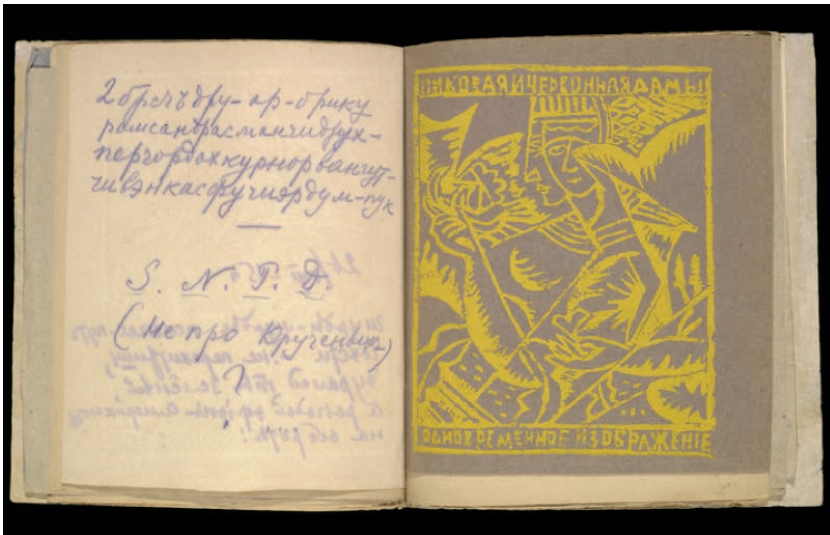 2 брсчъдру-ар-брику
рамсандрасманчидрух-
перчордохкурнорванчут-
чивэнкасфучиэрдум-пук
S. N. T. D.
(Не про Крученых)
?
ПИКОВАЯ И ЧЕРВОННАЯ ДАМЫ
ОДНОВРЕМЕННОЕ ИЗОБРАЖЕНІЕ